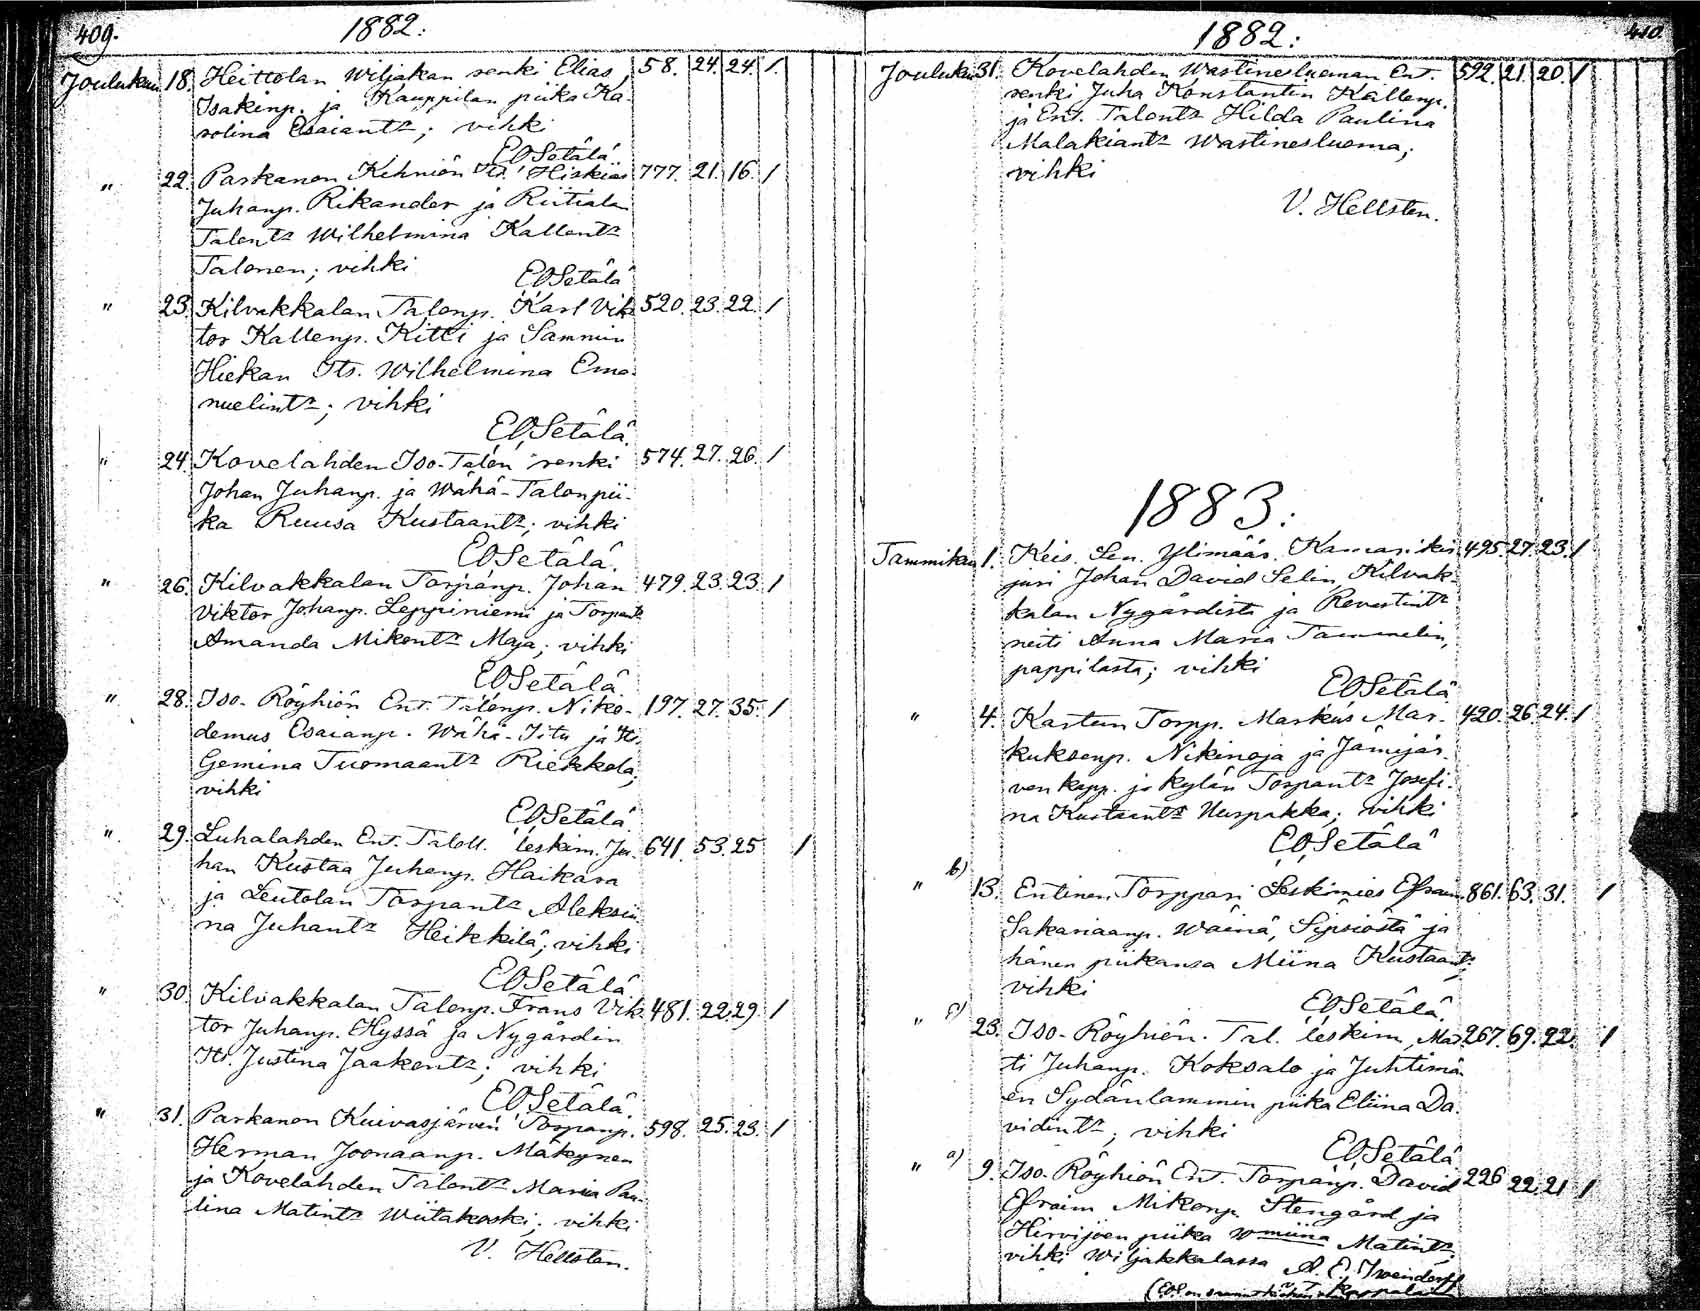 409.
1882:
Joulukuu 18. Heittolan Wiljakan renki Elias 58. 24. 24. 1.
Isakinp. ja Kauppilan piika Ka-
rolina Esaiantr; vihki
EOSetälä.
" 22. Parkanon Kihniön Its. Hiskias 777. 21. 16. 1
Juhanp. Rikander ja Riitialan
Talontr Wilhelmina Kallentr
Talonen; vihki
EOSetälä
" 23. Kilvakkalan Talonp. Karl Vik- 520. 23. 22. 1
tor Kallenp. Kitti ja Sammin
Hiekan Its. Wilhelmina Ema-
nuelintr; vihki
EOSetälä.
" 24. Kovelahden Iso-Talon renki 574. 27. 26. 1
Johan Juhanp. ja Wähä-Talon pii-
ka Ruusa Kustaantr; vihki
EOSetälä.
" 26. Kilvakkalan Torpanp. Johan 479. 23. 23. 1
Viktor Johanp. Leppiniemi ja Torpantr
Amanda Mikontr Maja; vihki
EOSetälä.
" 28. Iso-Röyhiön Ent. Talonp. Niko- 197. 27. 35. 1
demus Esaianp. Wähä-Iitu ja Its.
Gemina Tuomaantr Riekkola;
vihki
EOSetälä.
" 29. Luhalahden Ent. Taloll. leskim. Ju- 641. 53. 25. 1
han Kustaa Juhanp. Haikara
ja Leutolan Torpantr Aleksii-
na Juhantr Heikkilä; vihki
EOSetälä
" 30. Kilvakkalan Talonp. Frans Vik- 481. 22. 29. 1
tor Juhanp. Hyssä ja Nygårdin
Its. Justina Jaakontr; vihki
EOSetälä.
" 31. Parkanon Kuivasjärven Torpanp. 598. 25. 23. 1
Herman Joonaanp. Mäkynen
ja Kovelahden Talontr Maria Pau-
lina Matintr Wiitakoski; vihki
V. Hellsten.
410.
1882:
Joulukuu 31. Kovelahden Wastinesluoman Ent. 592. 21. 20. 1
renki Juha Konstantin Kallenp.
ja Ent. Talontr Hilda Paulina
Malakiantr Wastinesluoma;
vihki
V. Hellsten.
1883:
Tammikuu 1. Keis. Sen. Ylimäär. Kamarikir- 495. 27. 23. 1
juri Johan David Selin, Kilvak-
kalan Nygårdista ja Rovastintr
neiti Anna Maria Tammelin,
pappilasta; vihki
EOSetälä
" 4. Kartun Torpp. Markus Mar- 420. 26. 24. 1
kuksenp. Nikinoja ja Jämijär-
ven kapp. ja kylän Torpantr Josefi-
na Kustaantr Uuspakka; vihki
EOSetälä
" b) 13. Entinen Torppari Leskimies Efraim 861. 63. 31. 1
Sakariaanp. Wäinä, Sipsiöstä ja
hänen piikansa Miina Kustaantr;
vihki
EOSetälä.
" c) 23. Iso-Röyhiön Tal. leskim. Mat- 267. 69. 22. 1
ti Juhanp. Koksalo ja Juhtimä-
en Sydänlammin piika Eliina Da-
vidintr; vihki
EOSetälä
" a) 9. Iso-Röyhiön Ent. Torpanp. David 226 22. 21 1
Efraim Mikonp. Stengård ja
Hirvijoen piika Wmiina Matintr;
vihki Wiljakkalassa A. E.